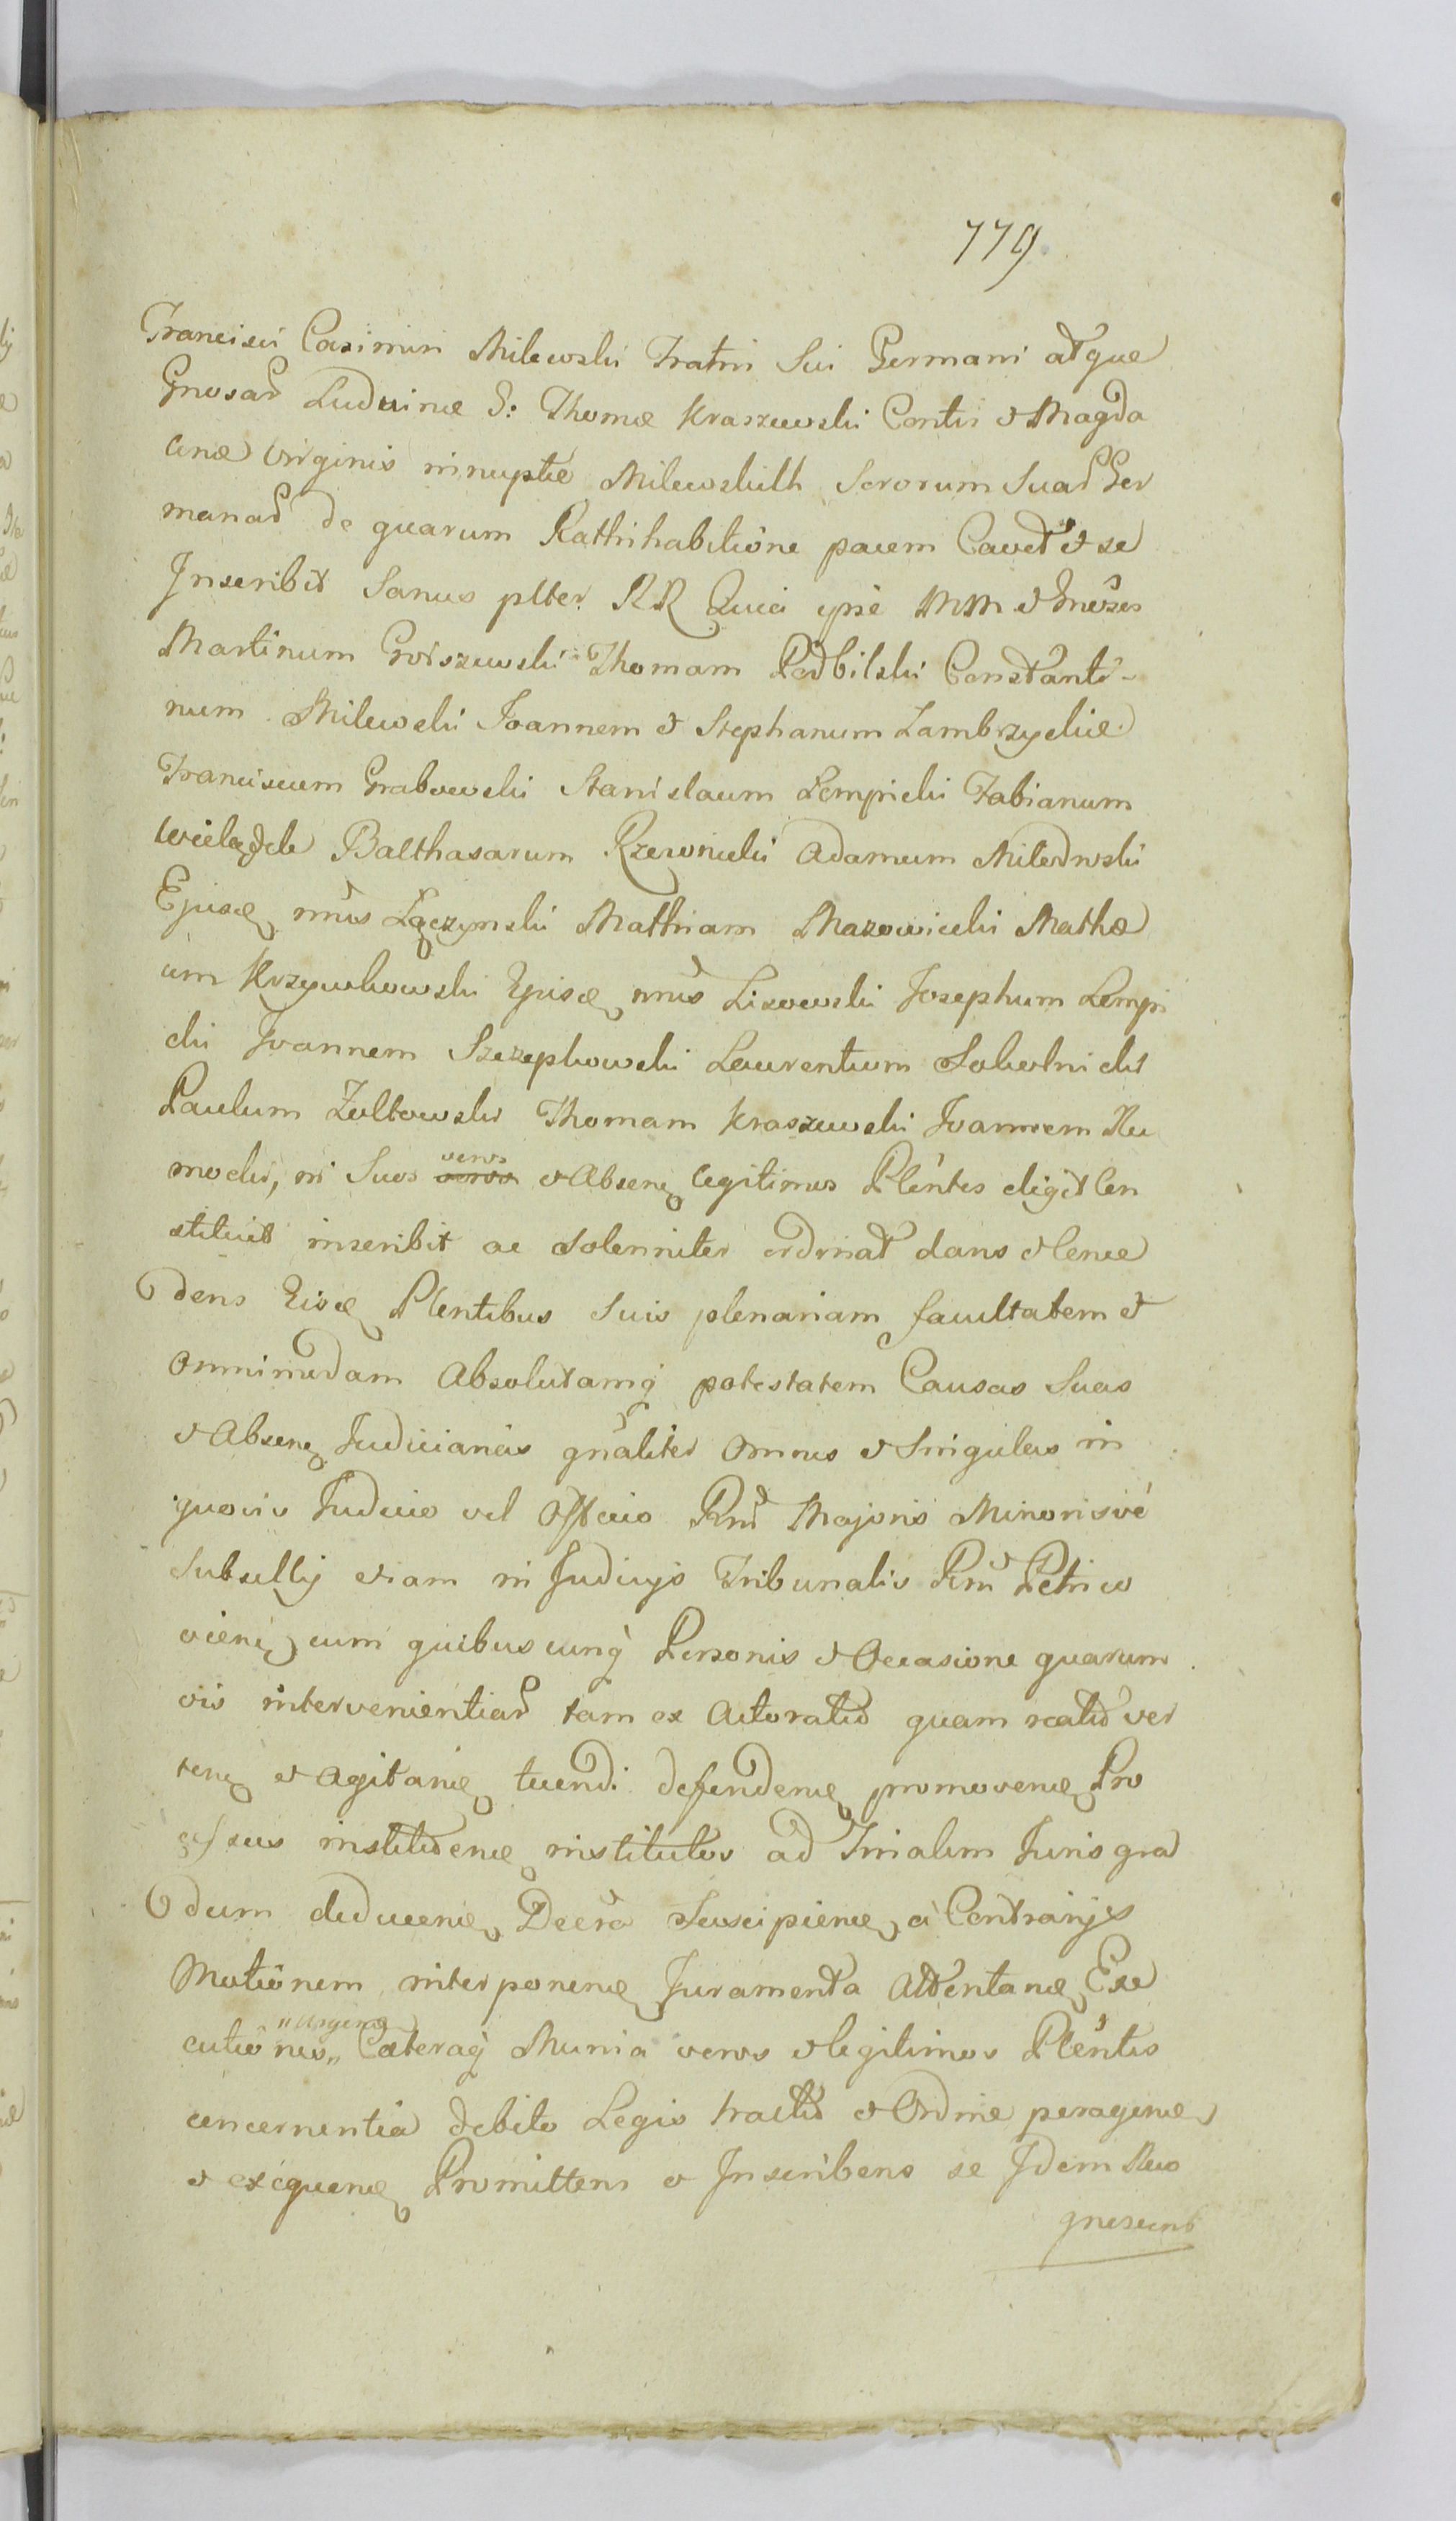 779.
Francisci Casimiri Milewski Fratri Sui Germani atque
Gnosar Ludvinæ G: Thomæ Kraszewski Contis et Magda
lenæ Virginis innuptæ Milewskich Sororum Suar Ger
manar de quarum Rathihabitione pacem Cavet et se
Inscribit Sanus plter RR Quia ipse MM et Gnêses
Martinum Grotszewski Thomam Podbilski Constanti-
num Milewski Joannem et Stephanum Zambrzyckie
Franciscum Grabowski Stanislaum Lempicki Fabianum
Wielądek Balthasarum Rzewnicki Adamum Milewski
Ejusd nnis Łączynski Mathiam Mazowiecki Mathæ
um Krzywkowski Ejusd nnis Lisowski Josephum Lempi
cki Joannem Szczepkowski Laurentium Sokolnicki
Paulum Zoltowski Thomam Kraszewski Joannem Ru
mocki, ni Suos veros et Absend legitimos Plêntes eligit Con
stituit inscribit ac solenniter ordinat dans et Conce
dens Eisd Plentibus Suis plenariam facultatem et
omnimodam Absolutamq potestatem Causas Suas
et Absend Judiciarias gnaliter omnes et Singulas in
quovis Judicio vel Officio Rni Majoris Minorisve
Subsellij etiam in Judicijs Tribunalis Rni Petrico
vien cum quibuscunq Personis et Occasione quarum
vis intervenientiar tam ex Actoratu quam reatu ver
ten et Agitand tuendi defendend promovend Pro
cessus instituend institutos ad Finalem Juris gra
dum deducend Decra Suscipiend a Contrarijs
Motionem interponend Juramenta Attentand Exe
cutiones "urgend" Cæteraq Munia veros et legitimos Plêntes
concernentia debito Legis tractu et Ordine peragend
et exequend Promittens et Inscribens se Idem Reco
gnoscens